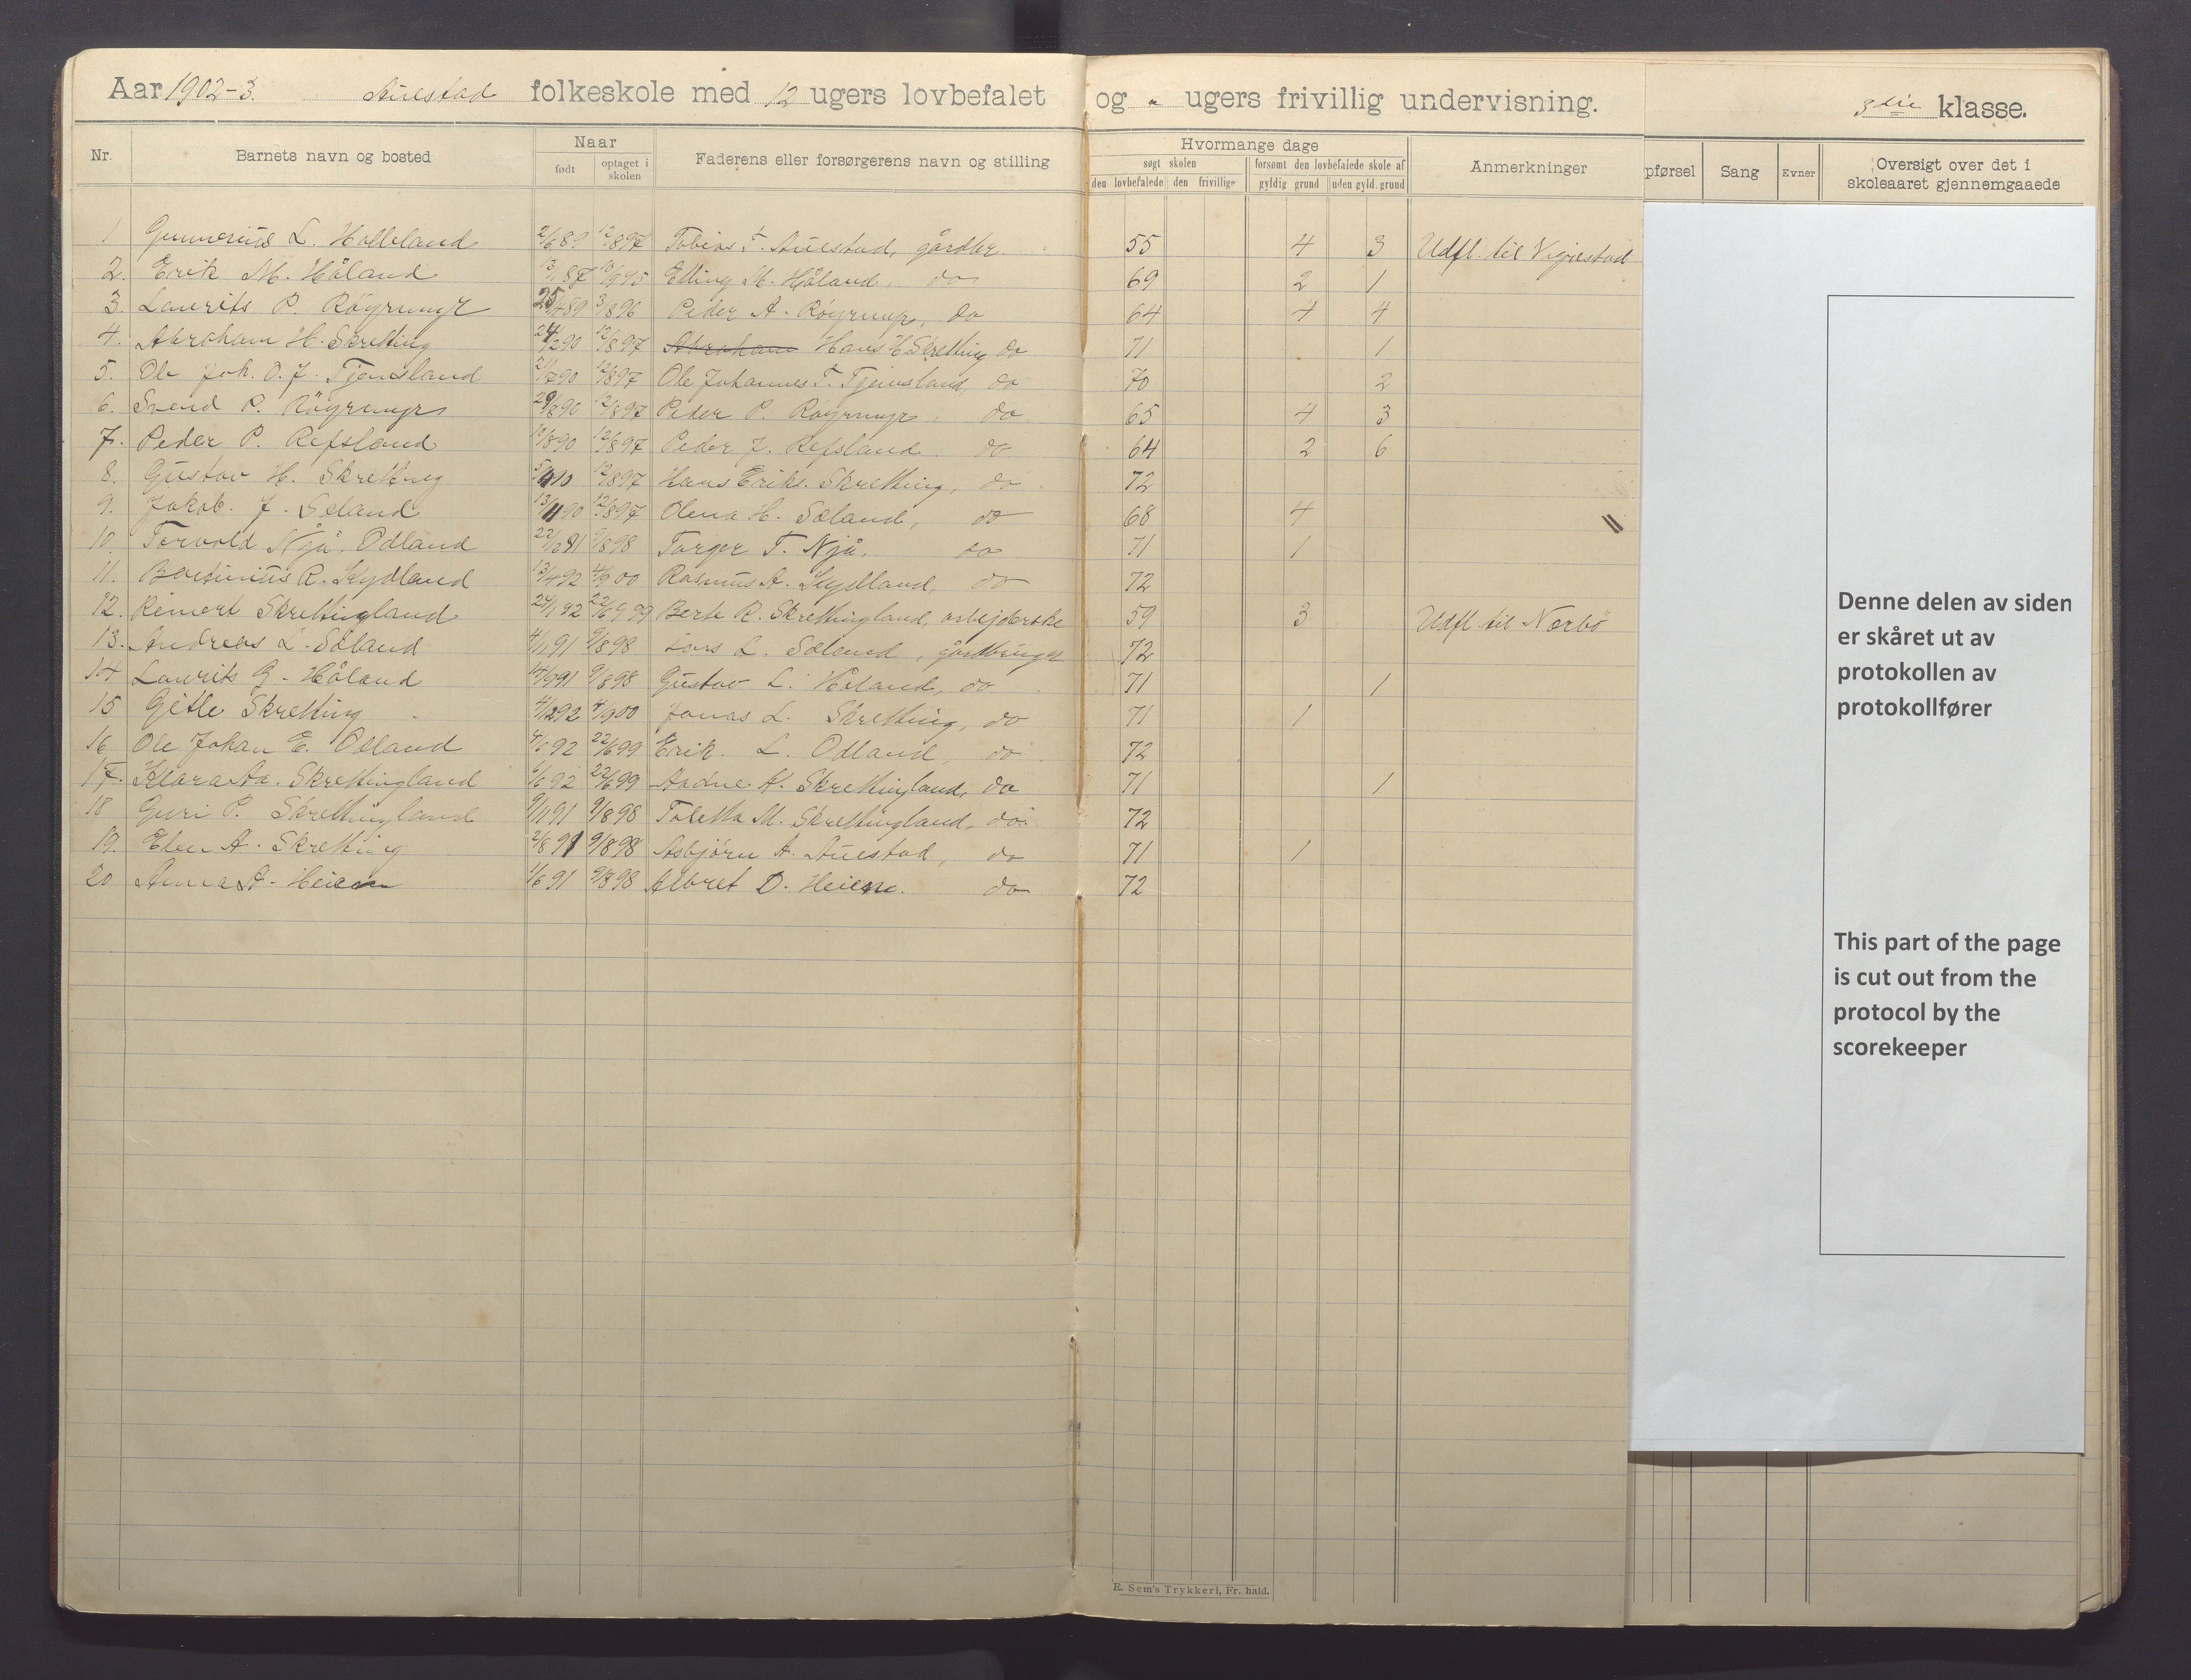 Aar 1902-3. Auestad folkeskole med 12 ugers lovbefalet og " ugers frivillig undervisning. 3die klasse.
Nr. Barnets navn og bosted Naar født optaget i skolen Faderens eller forsørgerens navn og stilling Hvormange dage søgt skolen den lovbefalede den frivillige forsømt den lovbefalede skole af gyldig grund uden gyld. grund Anmerkninger pførsel Sang Evner Oversigt over det i skoleaaret gjennemgaaede
1 Gunnerius L. Holleland 2/6 89 12/8 97 Tobias T. Auestad, gårdbr. 55 4 3 Udfl. til Vigrestad
2. Erik M. Håland 87 Elling M. Håland, do 69 2 1
3. Laurits P. Røyrmyr 25/4 89 3/8 96 Peder A. Røyrmyr, do 64 4 4
4. Abraham H. Skretting 24/2 90 12/8 97 Hans H Skretting do 71 1
5. Ole Joh. O. J. Tjensland 2/7 90 12/8 97 Ole Johannes T. Tjensland, do 70 2
6. Svend P. Røyrmyr 29/8 90 12/8 97 Peder P. Røyrmyr, do 65 4 3
7. Peder P. Refsland 10/8 90 12/8 97 Peder J. Refsland do 64 2 6
8. Gustav H. Skretting 12/8 97 Hans Eriks. Skretting, do 72
9. Jakob. J. Sæland 13/11 90 12/8 97 Olena H. Sæland, do 68 4
10. Torvald Njå, Odland 22/2 91 9/8 98 Torger T. Njå, do 71 1
11. R. Kydland 13/4 92 4/9 00 Rasmus A. Kydland, do 72
12. Reinert Skrettingland 24/1 92 22/6 99 Berte R. Skrettingland, arbejderske 59 3 Udfl. til Nærbø
13. Andreas L. Sæland 4/1 91 9/8 98 Lars L. Sæland, gårdbruger 72
14 Laurits G. Håland 14/9 91 9/8 98 Gustav L. Håland, do 71 1
15 Gitle Skretting 4/12 92 4/9 00 Jonas L. Skretting, do 71 1
16 Ole Johan E. Odland 4/6 92 22/6 99 Erik L. Odland, do 72
17. Klara Aa. Skrettingland 6/6 92 22/6 99 Aadne K. Skrettingland, do 71 1
18 Guri P. Skrettingland 9/11 91 9/8 98 Toletta M. Skrettingland, do. 72
19. Elen A. Skretting 2/8 91 9/8 98 Asbjørn A. Auestad, do 71 1
20 Anna A. Heien 1/6 91 9/8 98 Albret D. Heien. do 72
E. Sem's Trykkeri, Fr. hald.
Denne delen av siden
er skåret ut av
protokollen av
protokollfører
This part of the page
is cut out from the
protocol by the
scorekeeper